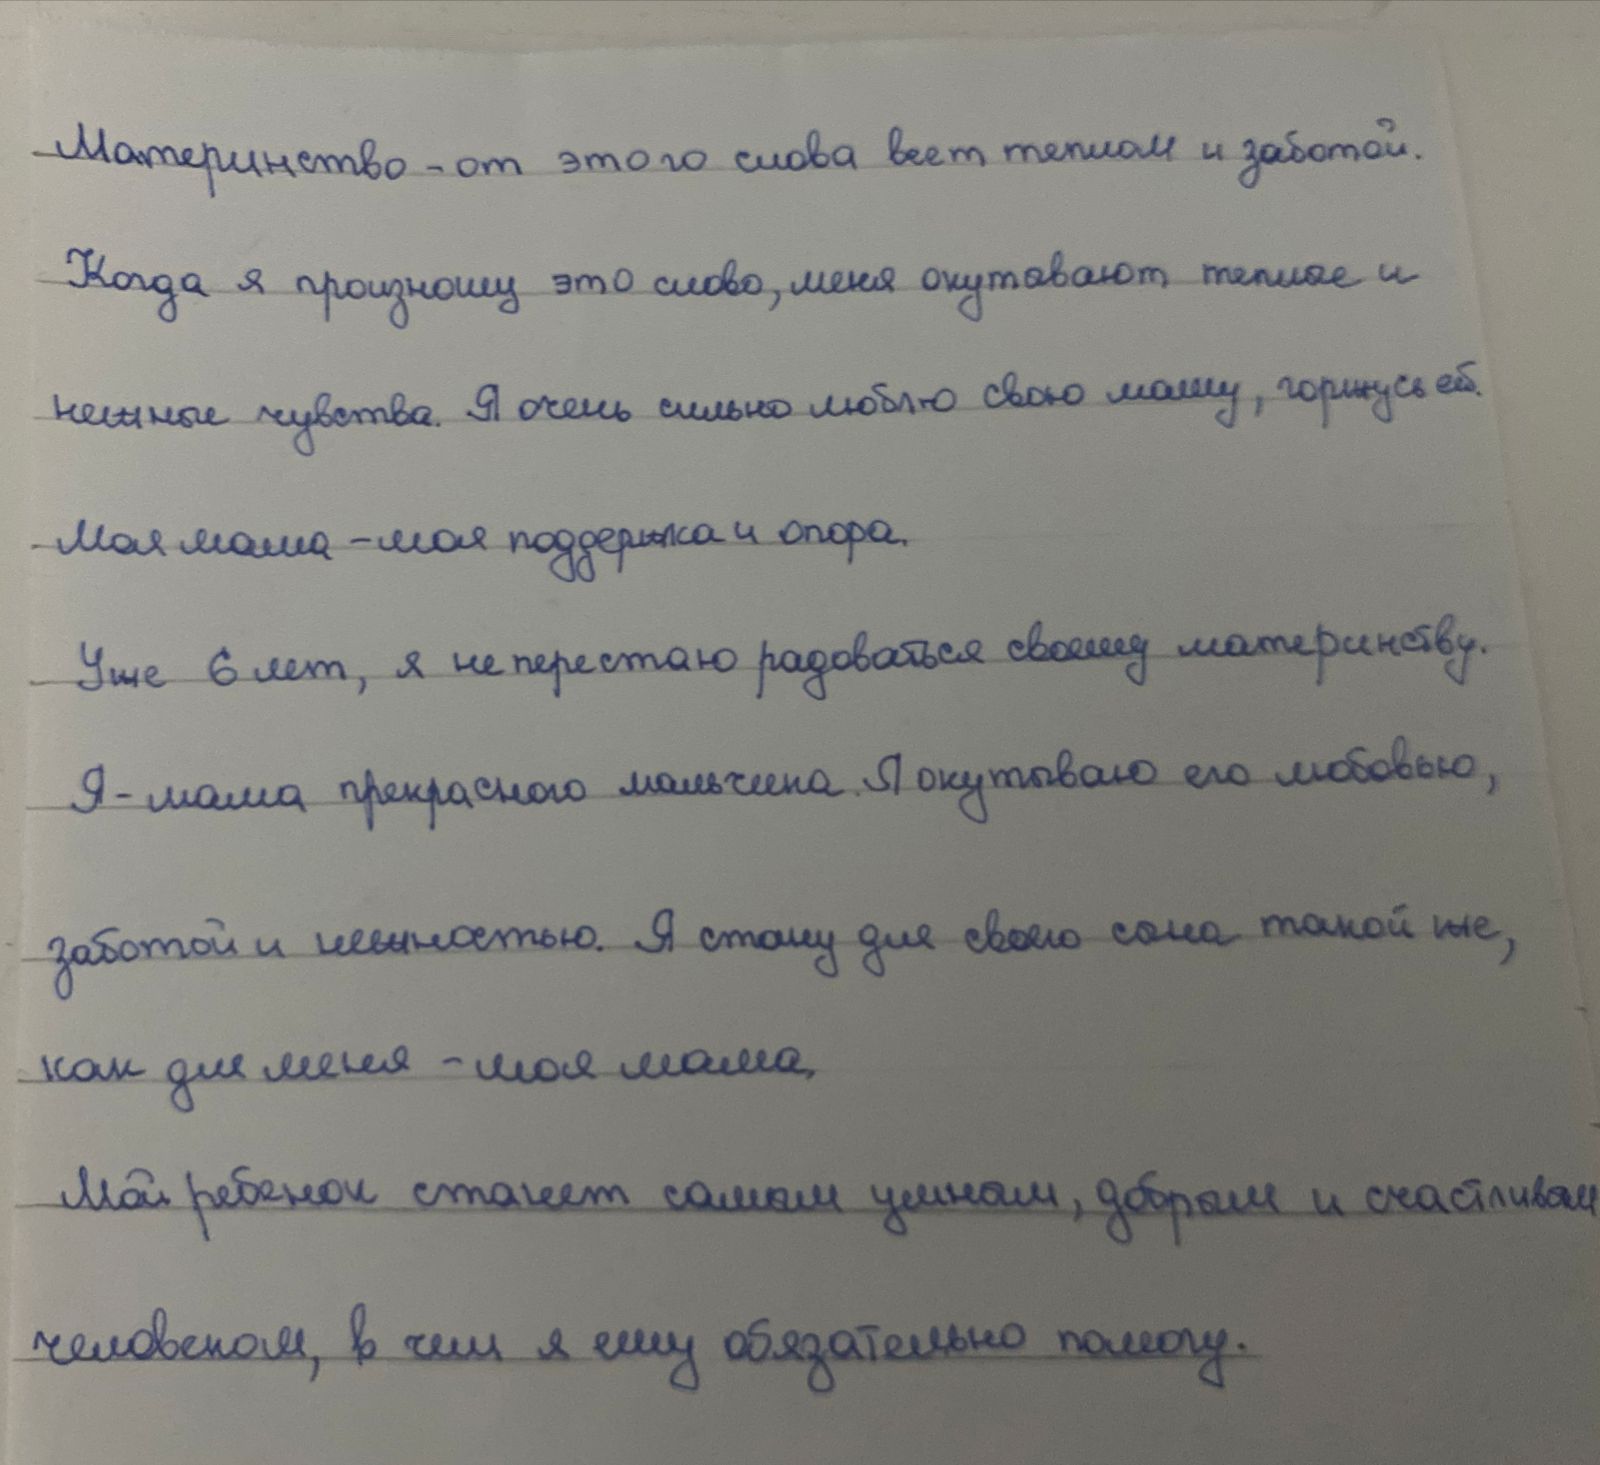 Материнство - от этого слова веет теплом и заботой.
Когда я произношу это слово, меня окутавают теплые и
нежные чувства. Я очень сильно люблю свою маму, горжусь ей.
Моя мама - моя поддержка и опора.
Уже 6 лет, я не перестаю радоваться своему материнству.
Я - мама прекрасного мальчика. Я окутываю его любовью,
заботой и нежностью. Я стану для своего сына такой же,
как для меня - моя мама.
Мой ребенок станет самым умным, добрым и счастливым
человеком, в чем я ему обязательно помогу.